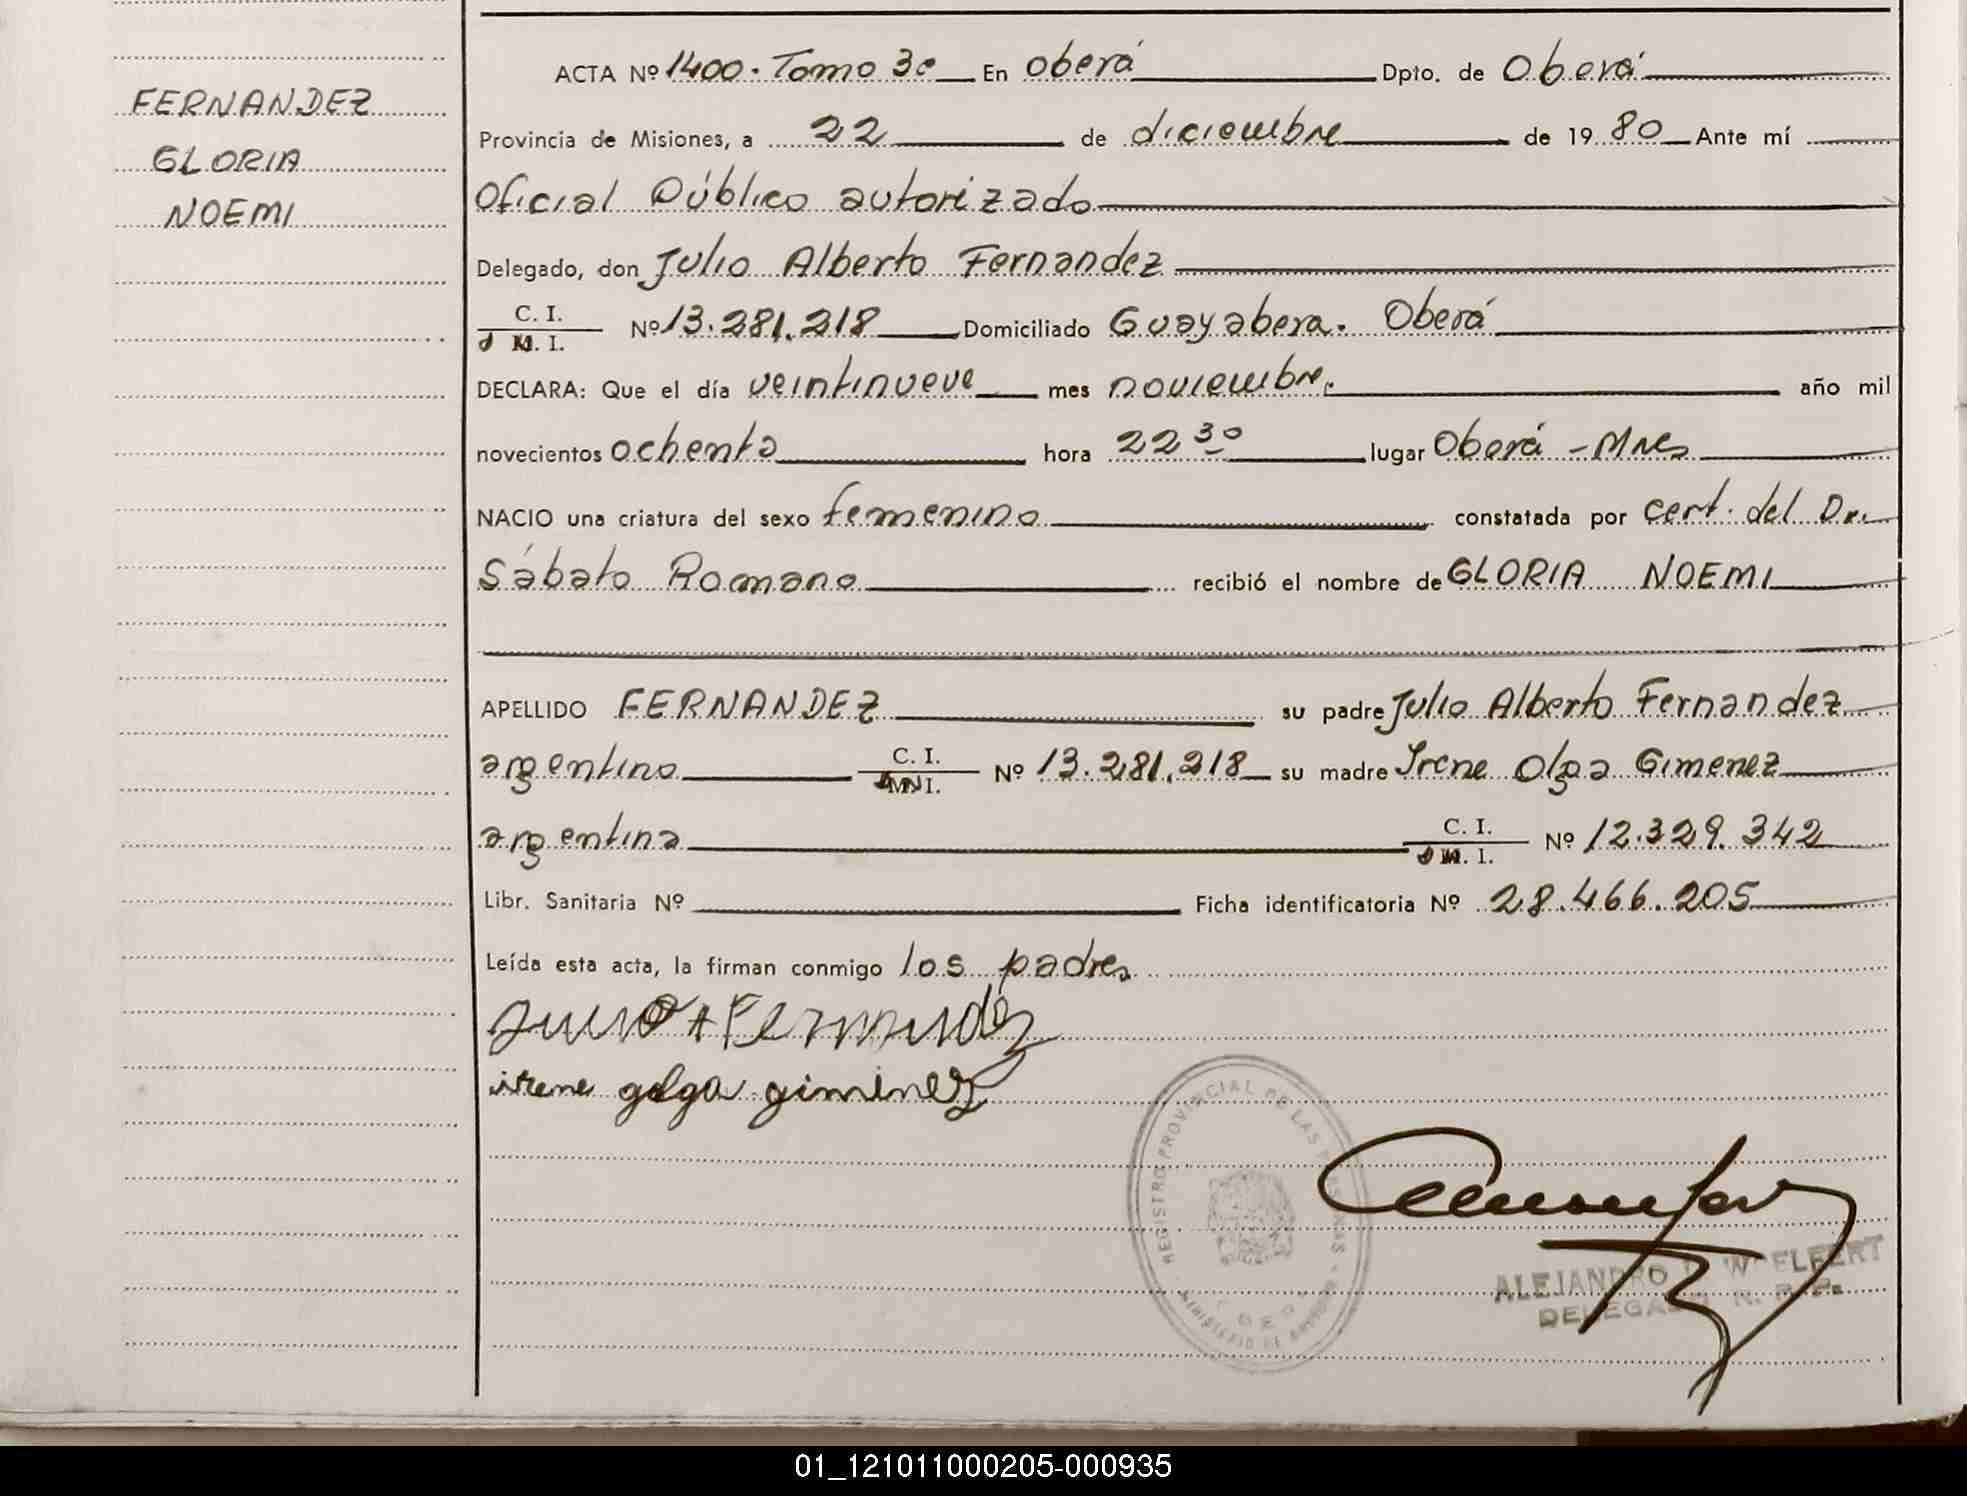 FERNANDEZ
GLORIA
NOEMI
ACTA Nº 1400. Tomo 3º En Oberá Dpto. de Oberá
Provincia de Misiones, a 22 de diciembre de 19 80 Ante mí
Oficial Público autorizado
Delegado, don Julio Alberto Fernandez
C. I.
M. I.
Nº 13.281.218 Domiciliado Guayabera. Oberá
DECLARA: Que el día veintinueve mes noviembre. año mil
novecientos ochenta hora 22 30 lugar Oberá - Mnes
NACIO una criatura del sexo femenino constatada por cert. del Dr.
Sábato Romano recibió el nombre de GLORIA NOEMI
APELLIDO FERNANDEZ su padre Julio Alberto Fernandez
argentino C. I. Nº 13.281.218 su madre Irene Olga Gimenez
argentina C. I. Nº 12.329.342
M. I.
Libr. Sanitaria Nº Ficha identificatoria Nº 28.466.205
Leída esta acta, la firman conmigo los padres
Julio A Fernandez
irene golga giminez
REGISTRO PROVINCIAL DE LAS PERSONAS
MINISTERIO DE
ALEJANDRO
DELEGADO
01_121011000205-000935